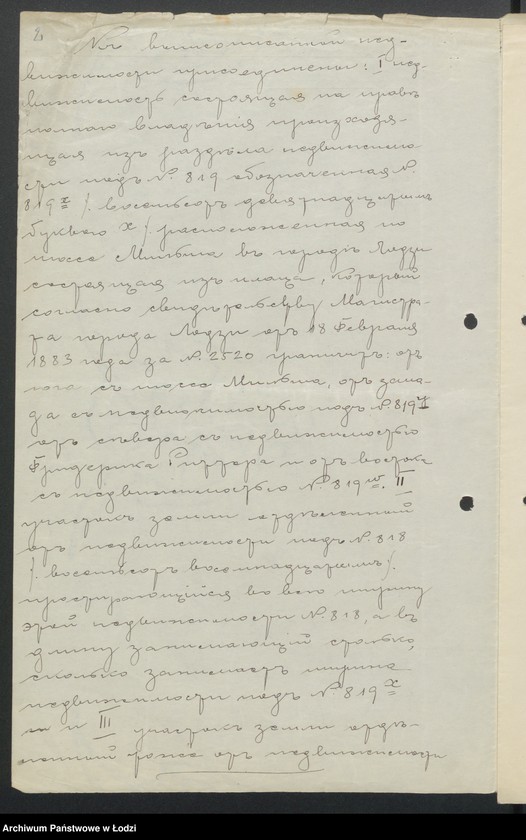 2
Къ вышеописанной нед-
вижимости присоединены: I нед-
вижимость состоящая на правѣ
полнаго владѣнія происходя-
щая изъ раздѣла недвижимо
сти подъ №. 819 обозначенная №.
819 х /. восемьсотъ девятнадцатымъ
буквою Х /. расположенная по
шоссе Мильша въ городѣ Лодзи
состоящая изъ плаца, который
согласно свидѣтельству Магистра-
та города Лодзи отъ 18 Февраля
1883 года за №. 2520 граничитъ: отъ
юга съ шоссе Мильша, отъ запа-
да съ недвижимостью подъ №. 819
отъ сѣвера съ недвижимостью
Фридерика Риттера и отъ востока
съ недвижимостью № 819 w. II
участокъ земли отдѣленный
отъ недвижимости подъ №. 818
/. восемьсотъ восемнадцатымъ /.
простирающійся во всю ширину
этой недвижимости №. 818, а въ
длину занимающій столько,
сколько занимаетъ ширина
недвижимости подъ № 819 х
и III участокъ земли отдѣ-
ленный тоже отъ недвижимости
Archiwum Państwowe w Łodzi